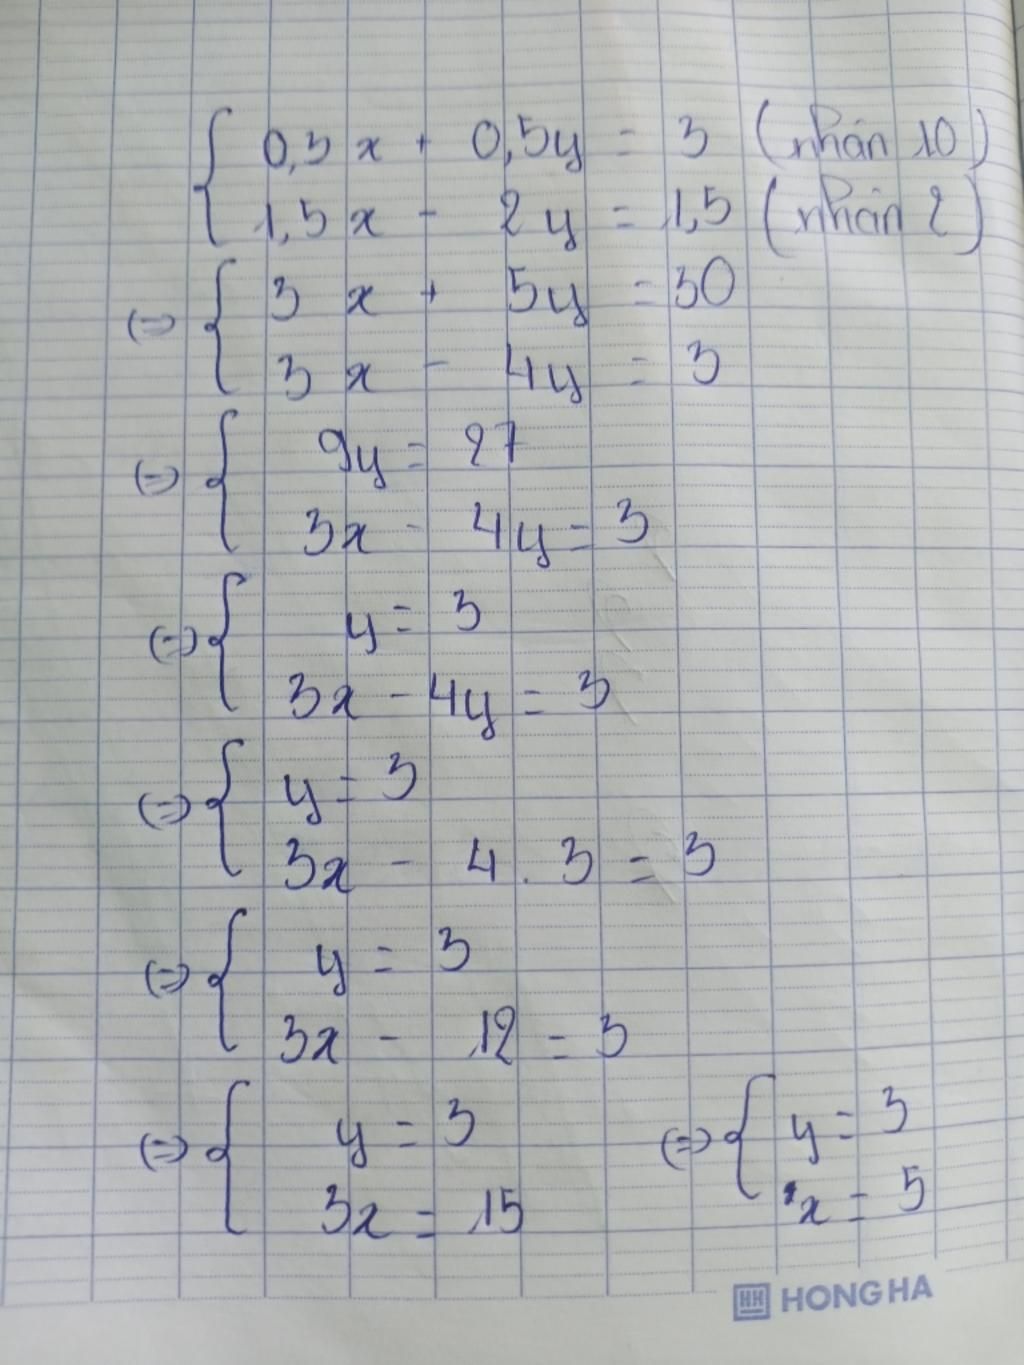 0,3x + 0,5y = 3 (nhân 10)
1,5x - 2y = 1,5 (nhân 2)
(=) 3x + 5y = 30
3x - 4y = 3
(=) 9y = 27
3x - 4y = 3
(=) y = 3
3x - 4y = 3
(=) y = 3
3x - 4 . 3 = 3
(=) y = 3
3x - 12 = 3
(=) y = 3
3x = 15
(=) y = 3
x = 5
HONG HA